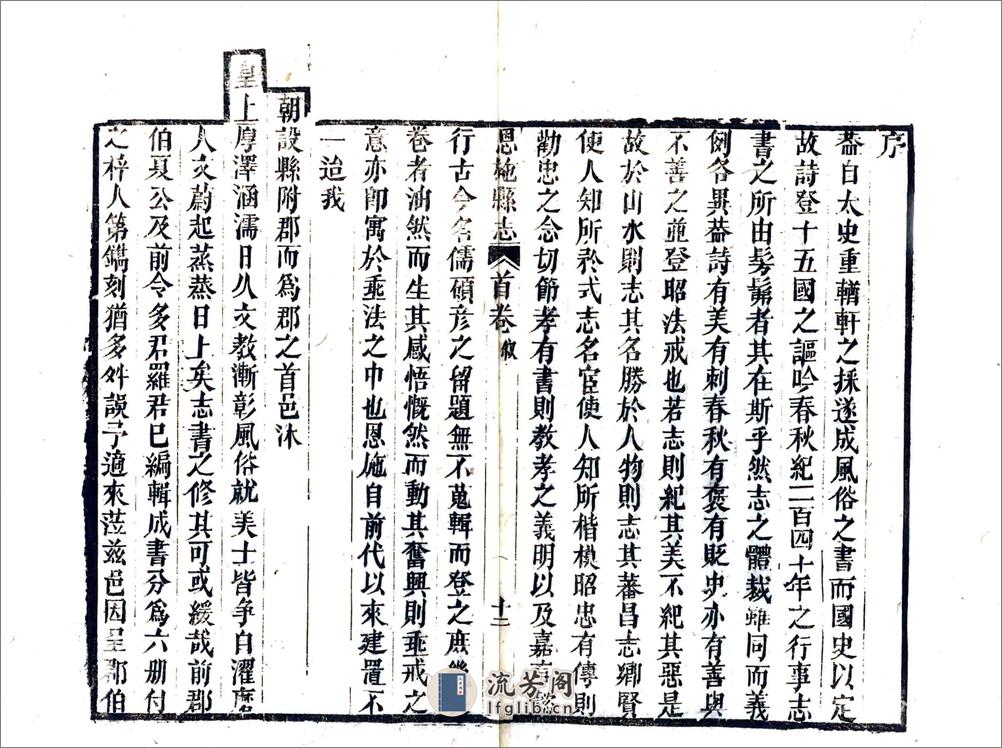 序
葢自太史重輶軒之採遂成風俗之書而國史以定
故詩登十五國之謳吟春秋紀二百四十年之行事志
書之所由髣髴者其在斯乎然志之體裁雖同而義
例各異葢詩有美有刺春秋有褒有貶史亦有善與
不善之並登昭法戒也若志則紀其美不紀其惡是
故於山水則志其名勝於人物則志其蕃昌志鄉賢
使人知所矜式志名宦使人知所楷模昭忠有傳則
勸忠之念切節孝有書則教孝之義明以及嘉言
恩施縣志 首卷 敘 十二
行古今名儒碩彥之留題無不蒐輯而登之庶幾
卷者油然而生其感悟慨然而動其奮興則垂戒之
意亦卽寓於垂法之中也恩施自前代以來建置不
一迨我
朝設縣附郡而爲郡之首邑沐
皇上厚澤涵濡日久文教漸彰風俗就美士皆爭自濯磨
人文蔚起蒸蒸日上矣志書之修其可或緩哉前郡
伯夏公及前令多君羅君已編輯成書分爲六册付
之梓人第鐫刻猶多舛誤予適來蒞兹邑因呈郡伯
流芳阁
lfglib.cn